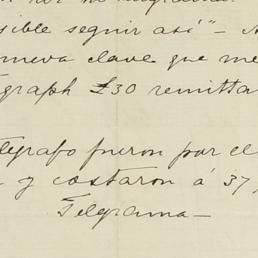 sible seguir así" – A
nueva clave que me
graph £30 remitta
légrafo fueron por el
y costaron á 37
Telgrama –